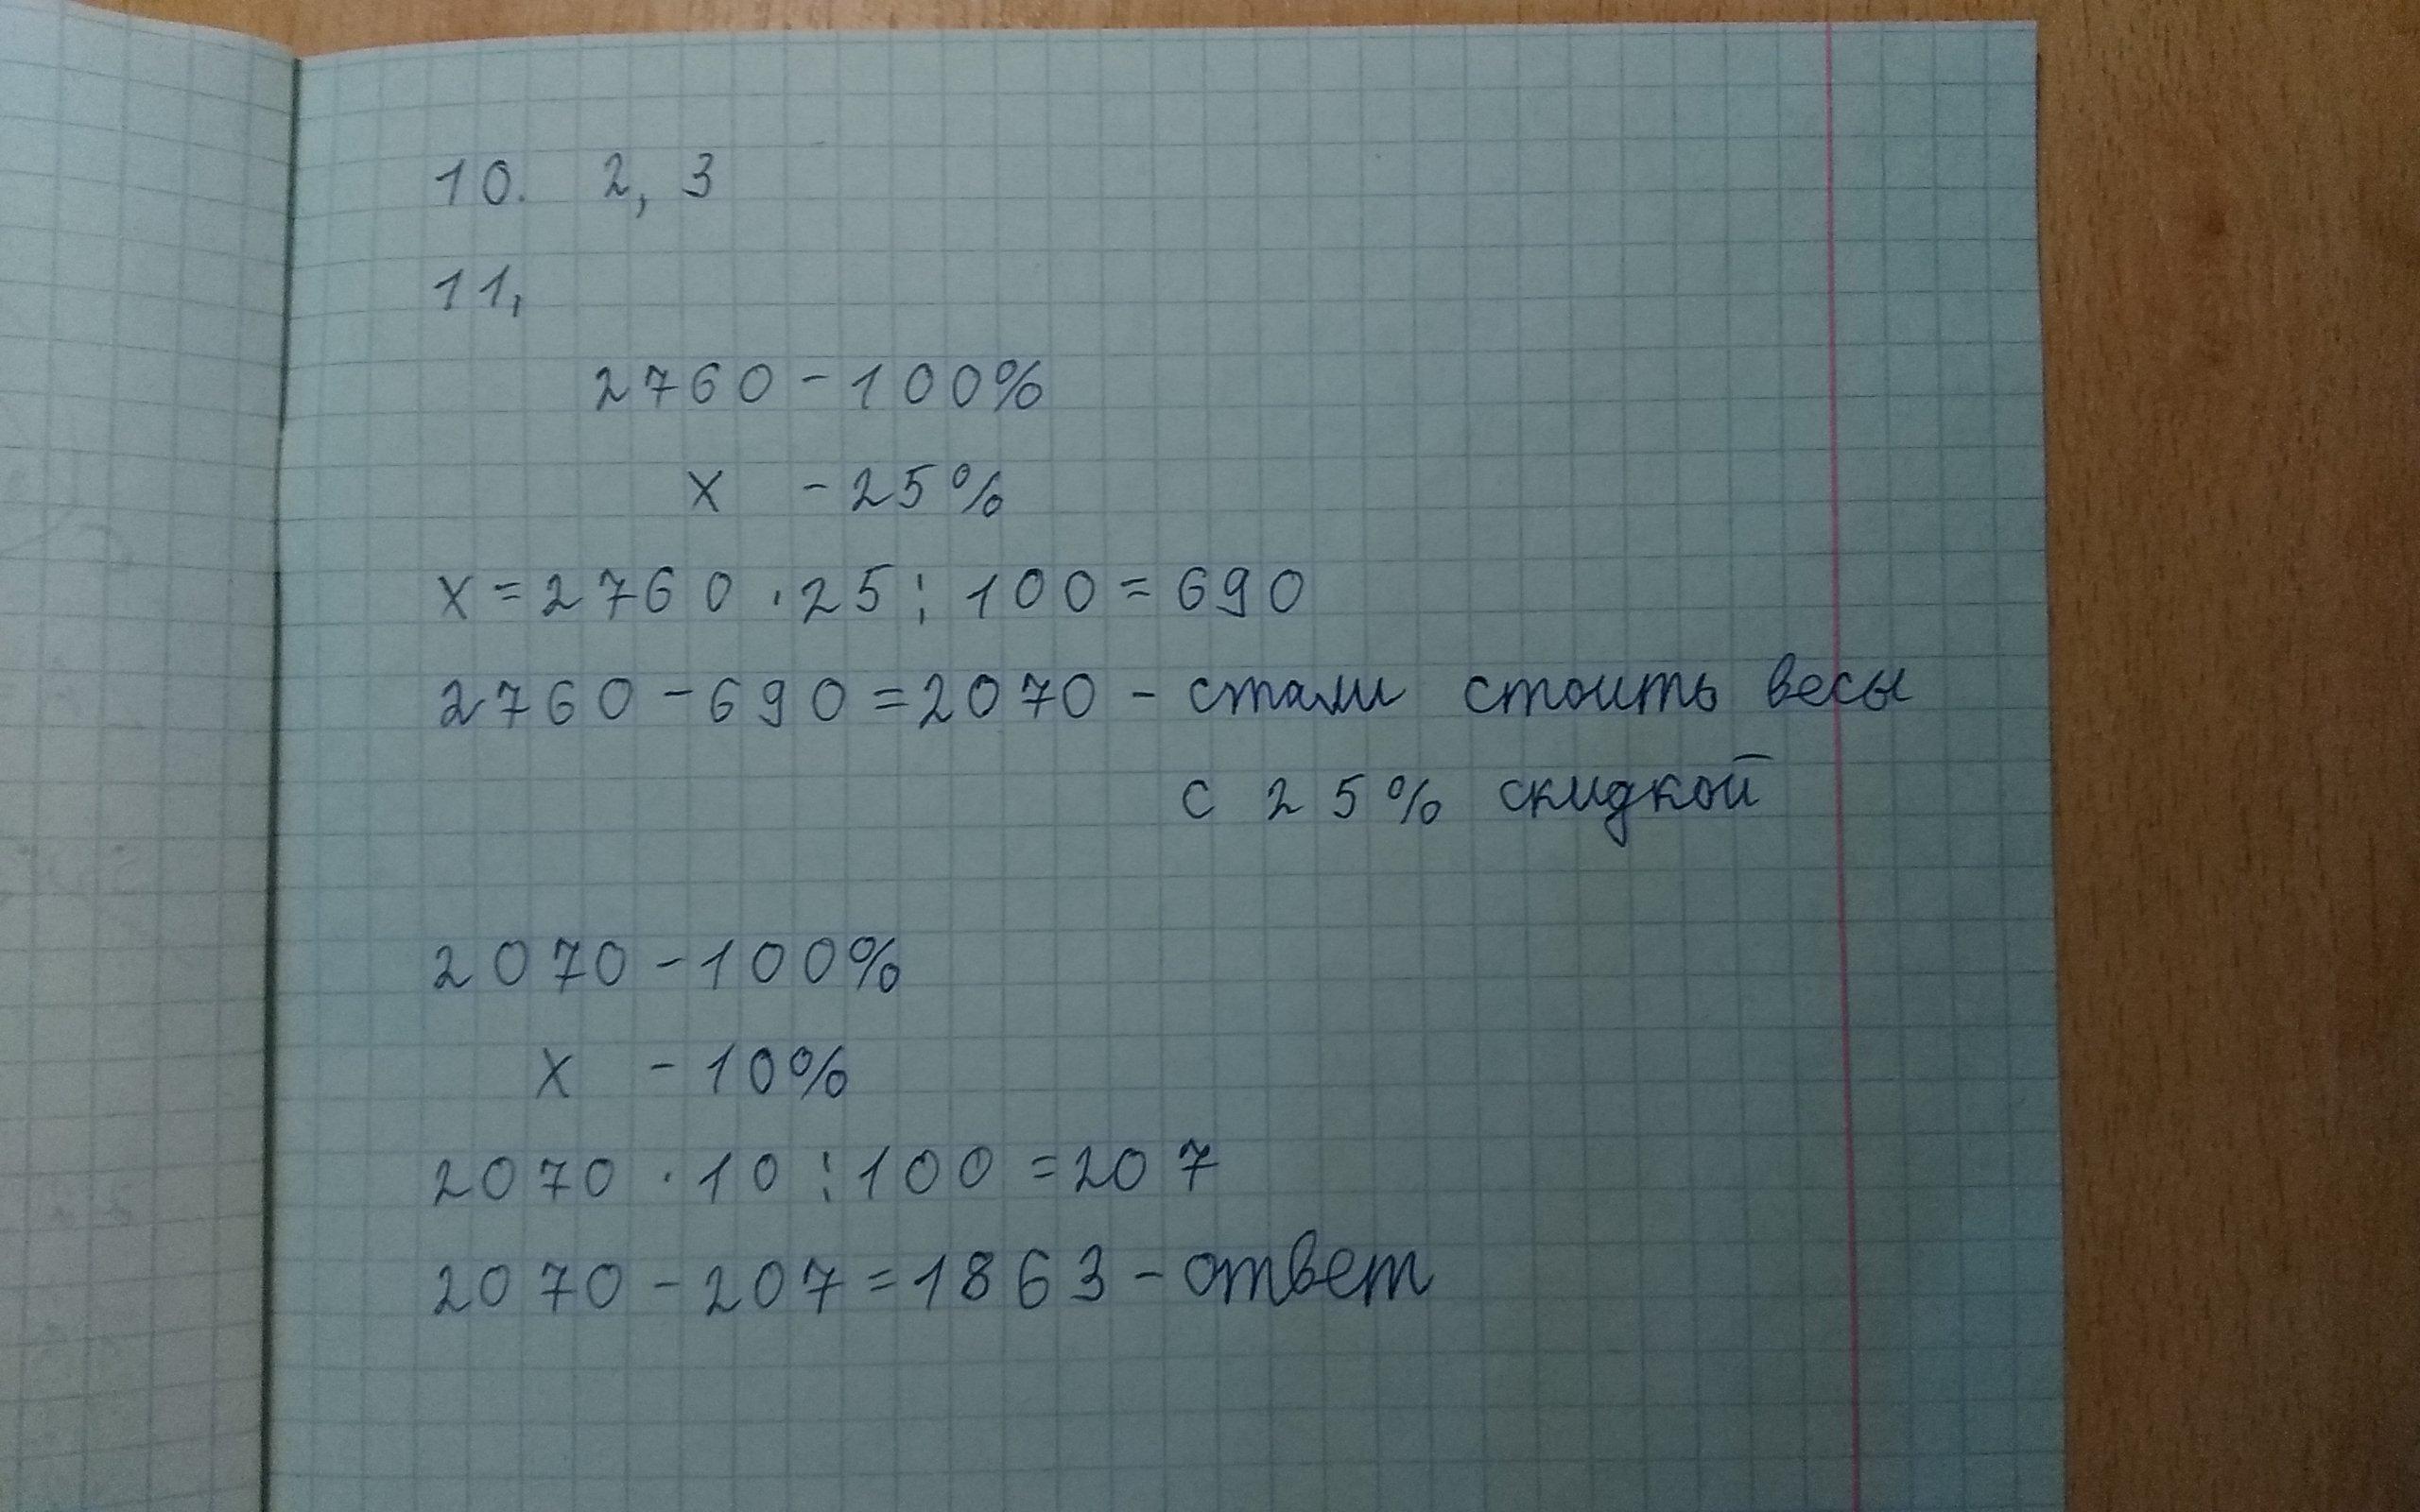 10. 2, 3
11,
2760 - 100%
x - 25%
x = 2760 · 25 : 100 = 690
2760 - 690 = 2070 - стали стоить весы
с 25% скидкой
2070 - 100%
x - 10%
2070 · 10 : 100 = 207
2070 - 207 = 1863 - ответ